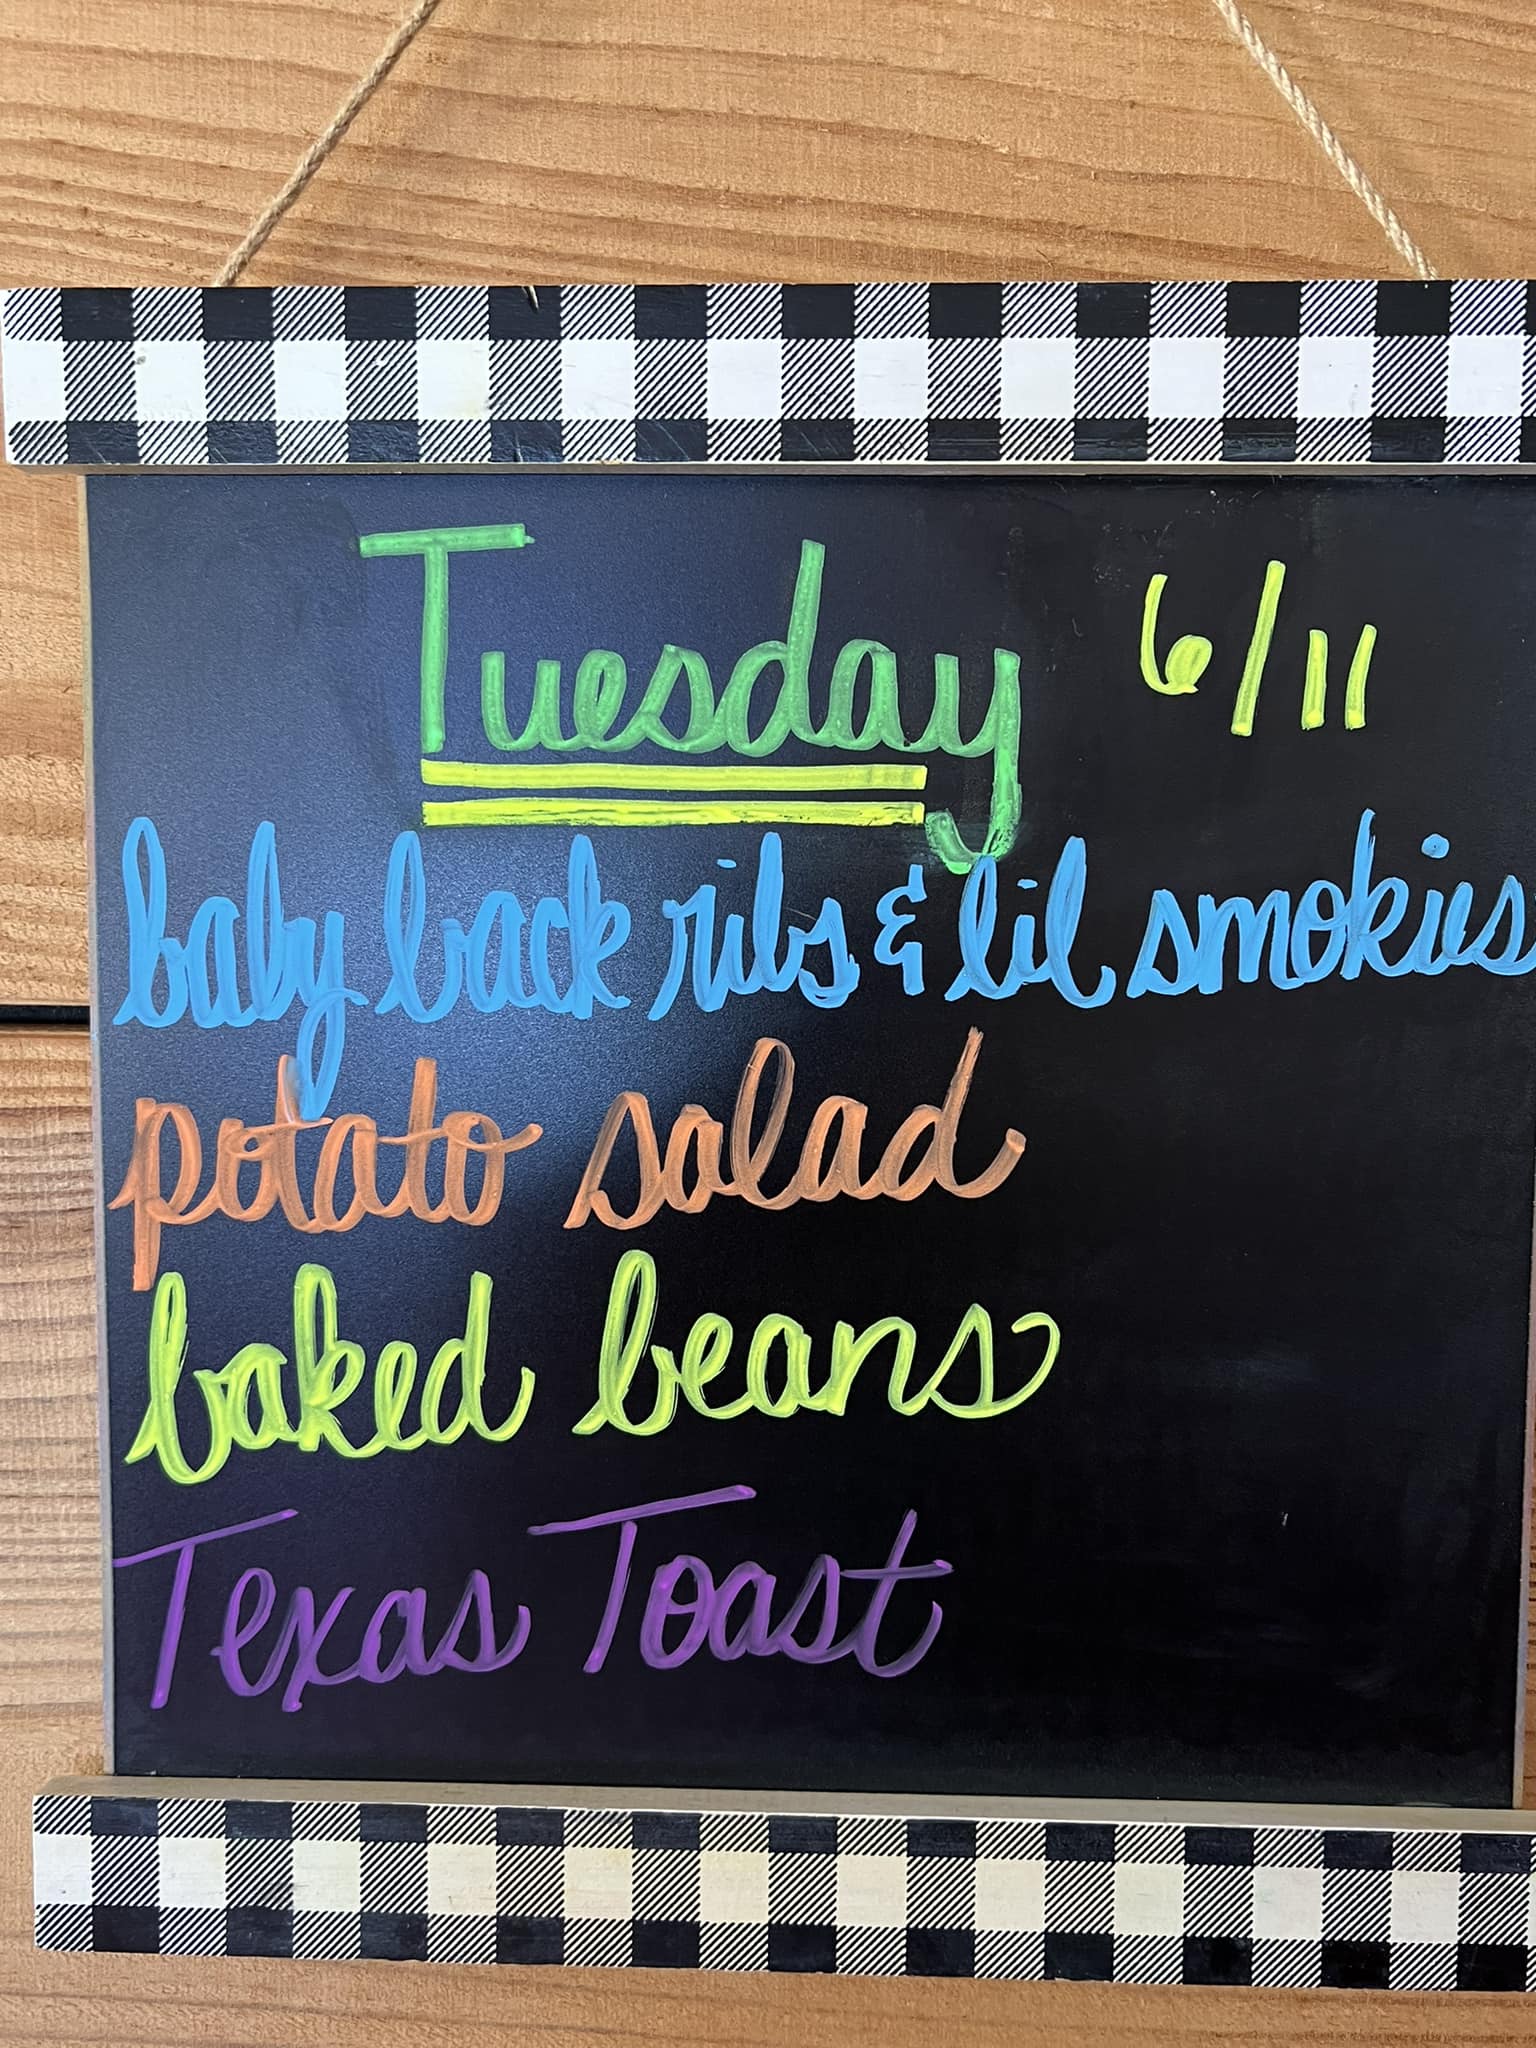 Tuesday 6/11
baby back ribs & lil smokies
potato salad
baked beans
Texas Toast